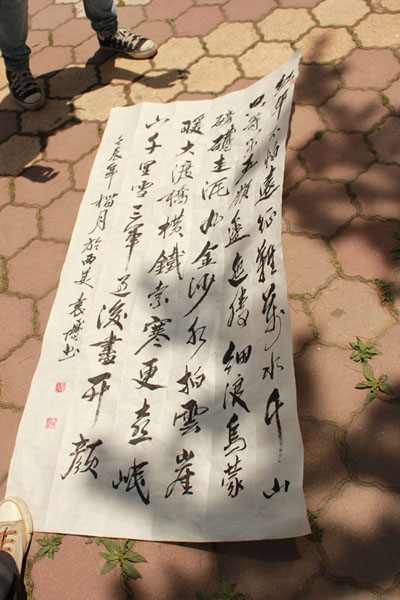 紅軍不怕遠征難萬水千山
只等闲五嶺逶迤騰細浪烏蒙
磅礴走泥丸金沙水拍雲崖
暖大渡橋橫鐵索寒更喜岷
山千里雪三軍过後盡开顏
壬辰年榴月於西美袁博书